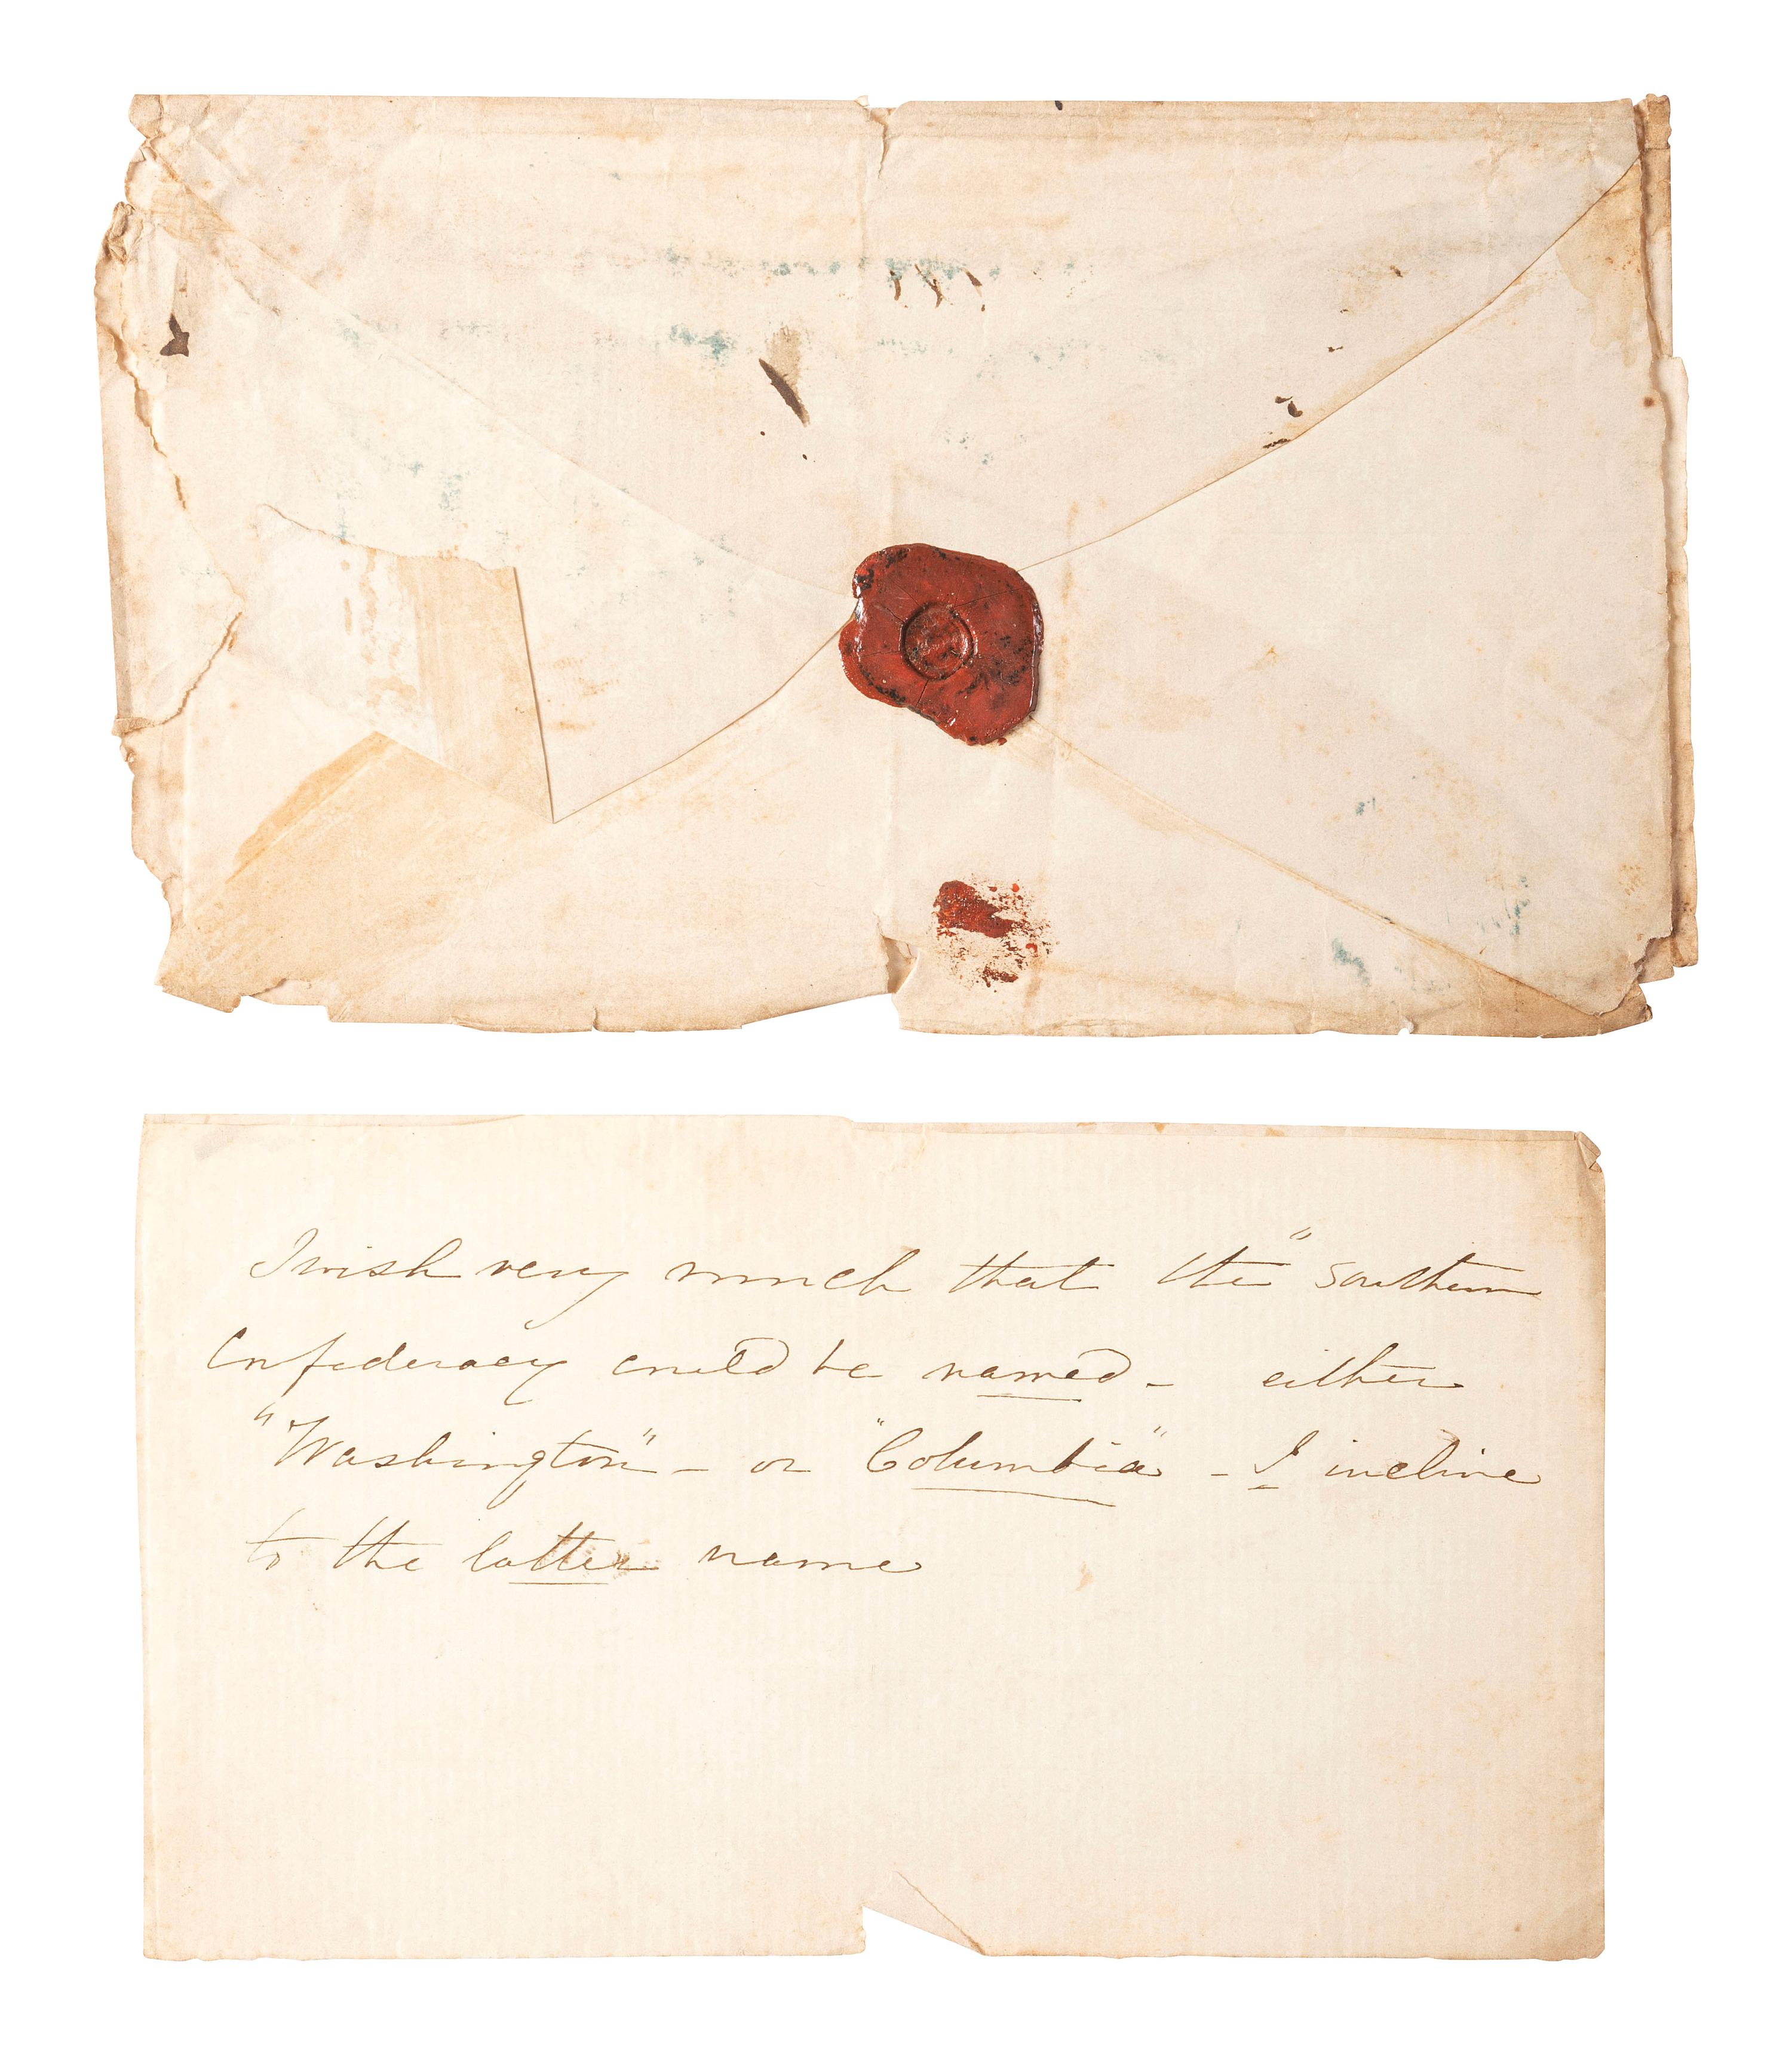 I wish very much that the "Southern
Confederacy could be named - either
"Washington" - or "Columbia" - I incline
to the latter name